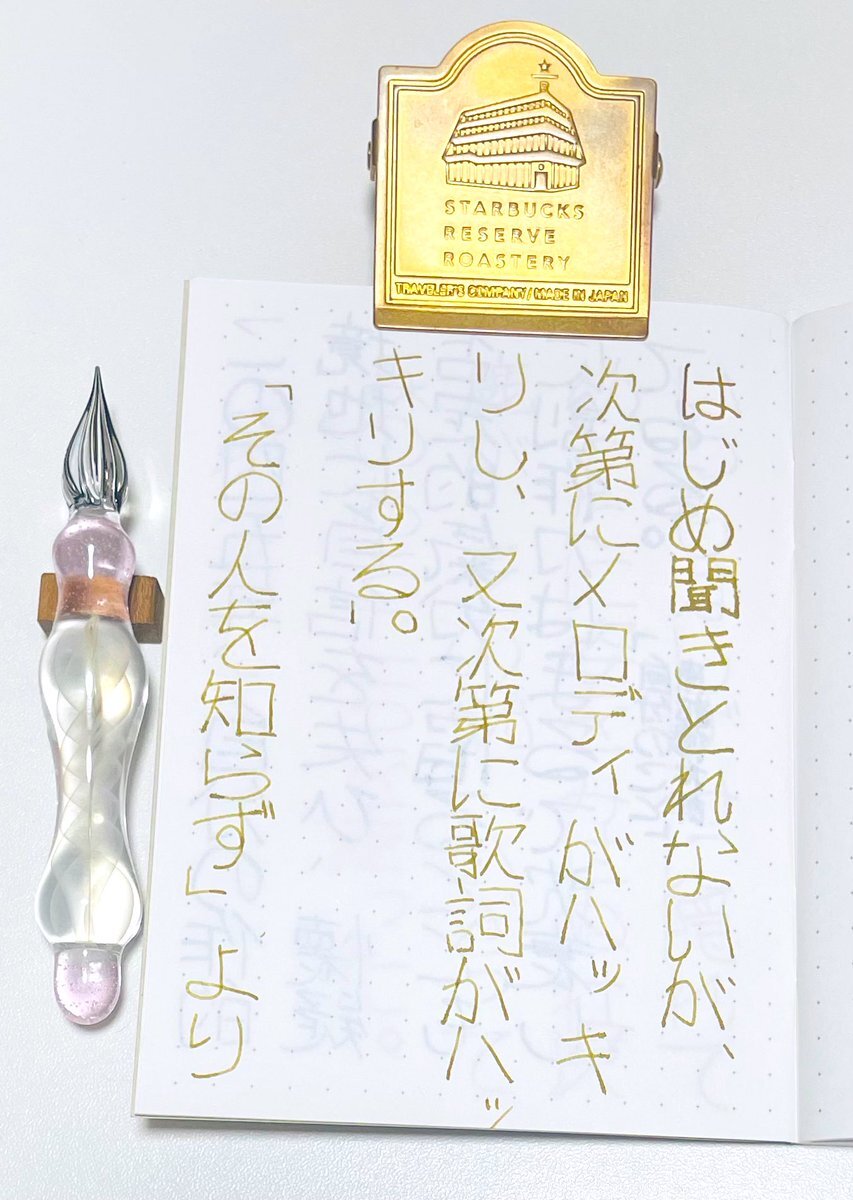 STARBUCKS
RESERVE
ROASTERY
TRAVELER'S COMPANY / MADE IN JAPAN
はじめ聞きとれないが、
次第にメロディがハッキ
リし、又次第に歌詞がハッ
キリする。
「その人を知らず」より